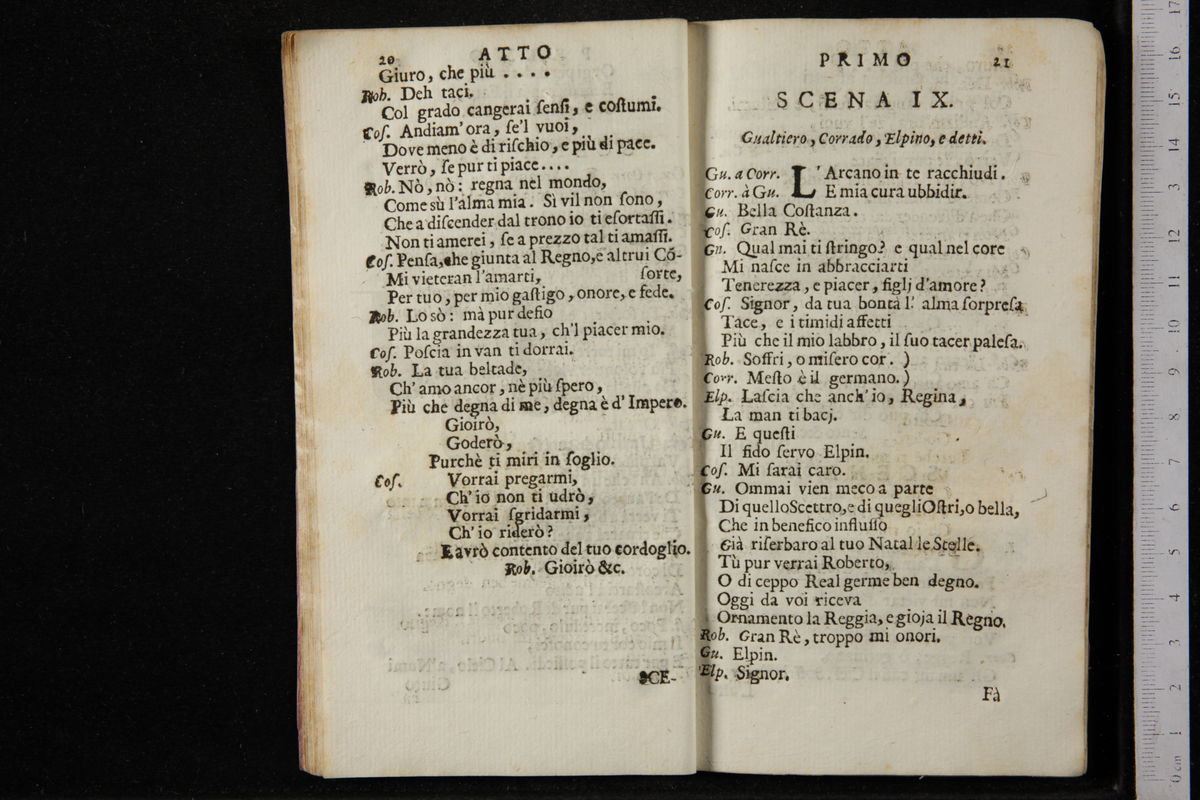 20 ATTO
Giuro, che più . . . .
Rob. Deh taci.
Col grado cangerai ſenſi, e coſtumi.
Coſ. Andiam' ora, ſe'l vuoi,
Dove meno è di riſchio, e più di pace.
Verrò, ſe pur ti piace....
Rob. Nò, nò: regna nel mondo,
Come sù l'alma mia. Sì vil non ſono,
Che a diſcender dal trono io ti eſortaſſi.
Non ti amerei, ſe a prezzo tal ti amaſſi.
Coſ. Penſa, che giunta al Regno, e altrui Cõ-
Mi vieteran l'amarti, ſorte,
Per tuo, per mio gaſtigo, onore, e fede.
Rob. Lo sò: mà pur deſio
Più la grandezza tua, ch'l piacer mio.
Coſ. Poſcia in van ti dorrai.
Rob. La tua beltade,
Ch' amo ancor, nè più ſpero,
Più che degna di me, degna è d' Impero.
Gioirò,
Goderò,
Purchè ti miri in ſoglio.
Coſ. Vorrai pregarmi,
Ch' io non ti udrò,
Vorrai ſgridarmi,
Ch' io riderò?
E avrò contento del tuo cordoglio.
Rob. Gioirò &c.
SCE-
PRIMO 21
SCENA IX.
Gualtiero, Corrado, Elpino, e detti.
Gu. a Corr. L'Arcano in te racchiudi.
Corr. à Gu. E mia cura ubbidir.
Gu. Bella Coſtanza.
Coſ. Gran Rè.
Gn. Qual mai ti ſtringo? e qual nel core
Mi naſce in abbracciarti
Tenerezza, e piacer, figlj d'amore?
Coſ. Signor, da tua bontà l' alma ſorpreſa
Tace, e i timidi affetti
Più che il mio labbro, il ſuo tacer paleſa.
Rob. Soffri, o miſero cor. )
Corr. Meſto è il germano. )
Elp. Laſcia che anch' io, Regina,
La man ti bacj.
Gu. E queſti
Il fido ſervo Elpin.
Coſ. Mi ſarai caro.
Gu. Ommai vien meco a parte
Di quello Scettro, e di quegli Oſtri, o bella,
Che in benefico influſſo
Già riſerbaro al tuo Natal le Stelle.
Tù pur verrai Roberto,
O di ceppo Real germe ben degno.
Oggi da voi riceva
Ornamento la Reggia, e gioja il Regno.
Rob. Gran Rè, troppo mi onori.
Gu. Elpin.
Elp. Signor.
Fà